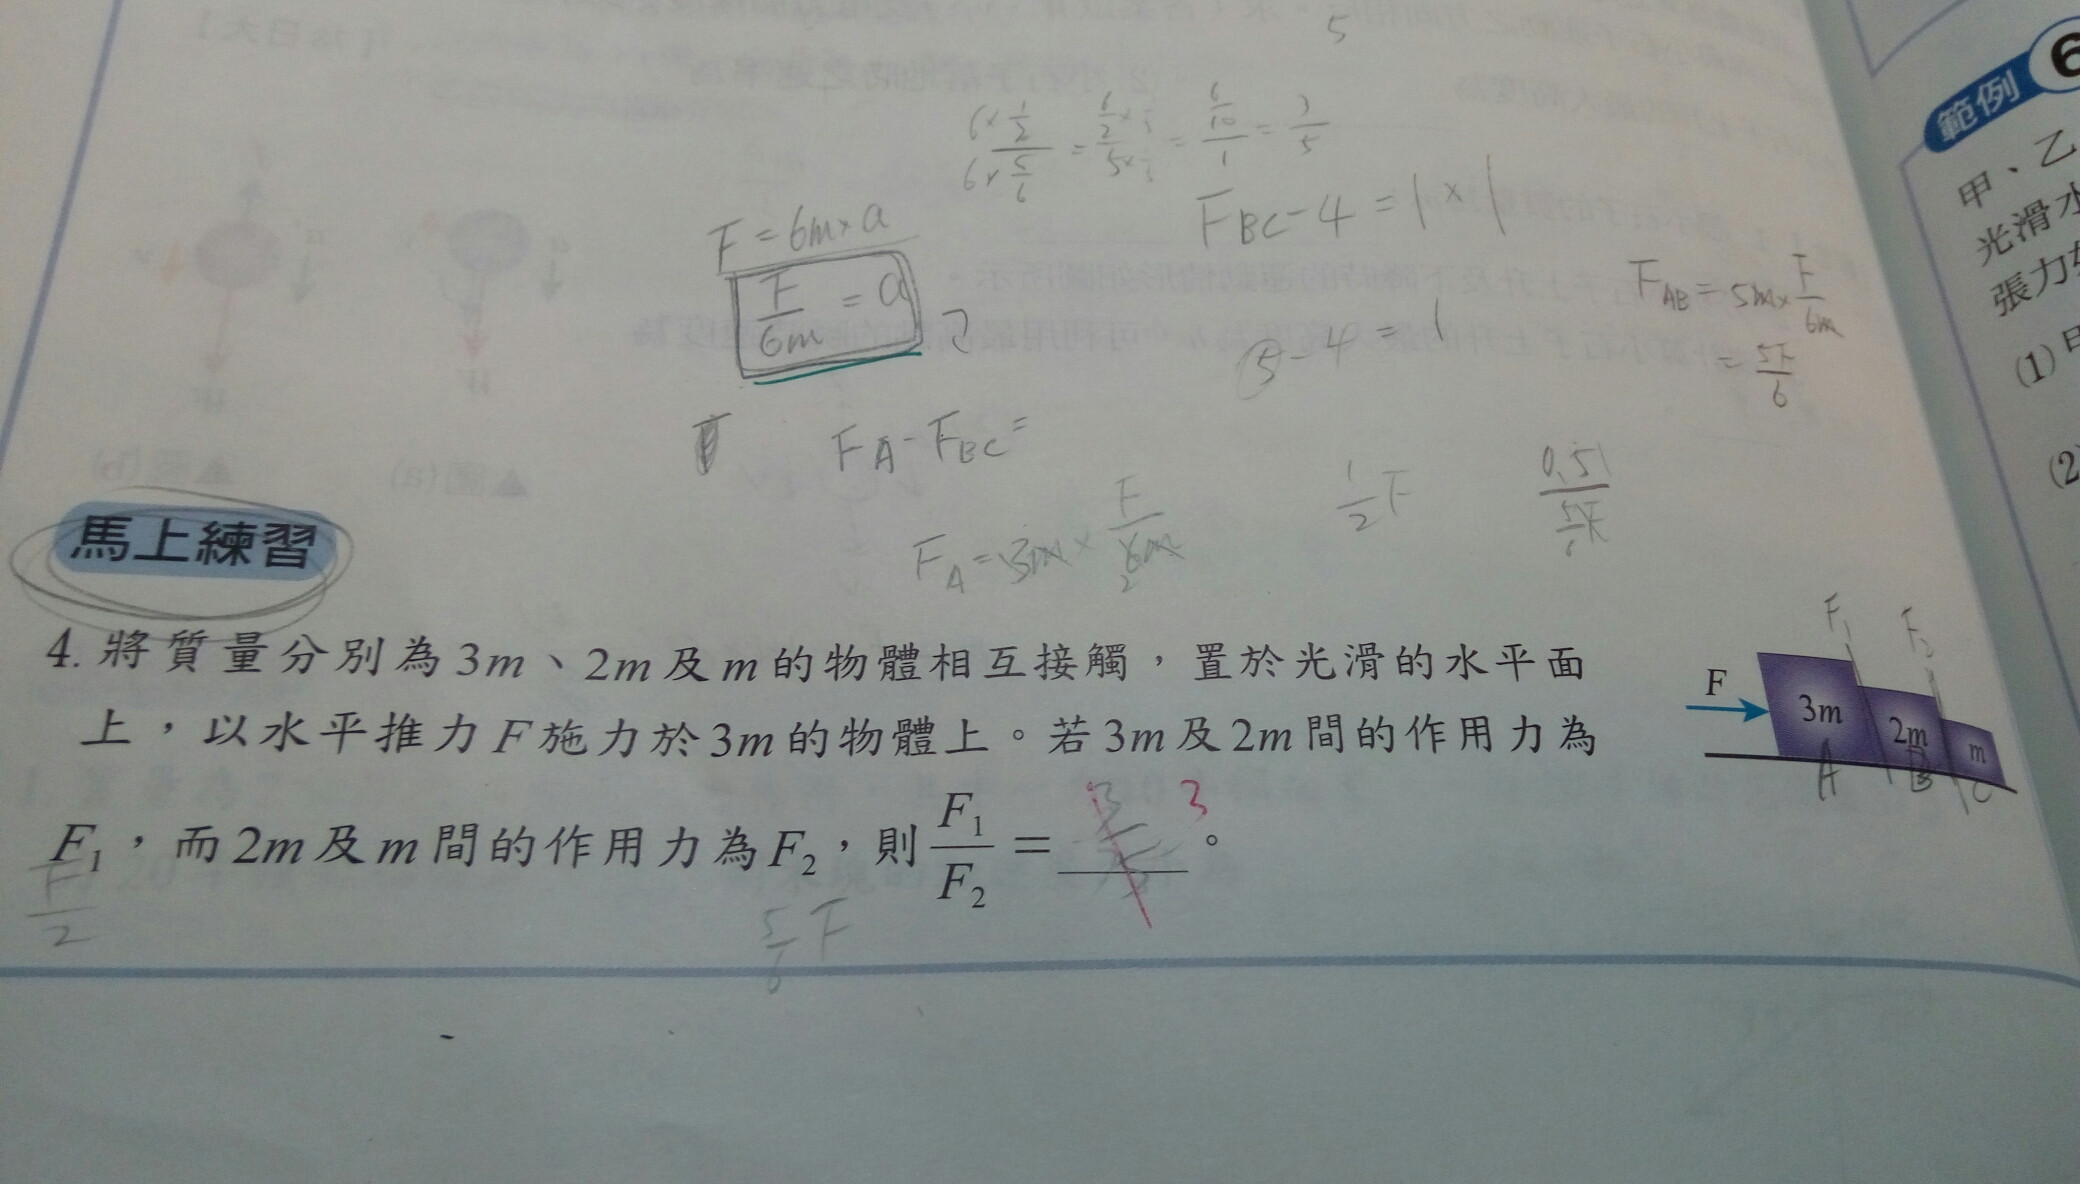 5
6×1/2 / 6×5/6 = 6/2 / 5 = 6/10 / 1 = 3/5
F = 6m×a
F/6m = a
F_BC - 4 = 1×1
5 - 4 = 1
F_AB = 5m×F/6m
= 5F/6
F_A - F_BC =
F_A = 3m × F/6m
2
1/2 F
馬上練習
4. 將質量分別為3m、2m及m的物體相互接觸,置於光滑的水平面
上,以水平推力F施力於3m的物體上。若3m及2m間的作用力為
F₁,而2m及m間的作用力為F₂,則F₁/F₂ = 3/5 3 。
F/2
5/6 F
F₁ F₂
F 3m 2m m
A B C
範例 6
甲、乙
光滑水
張力
(1)
(2)